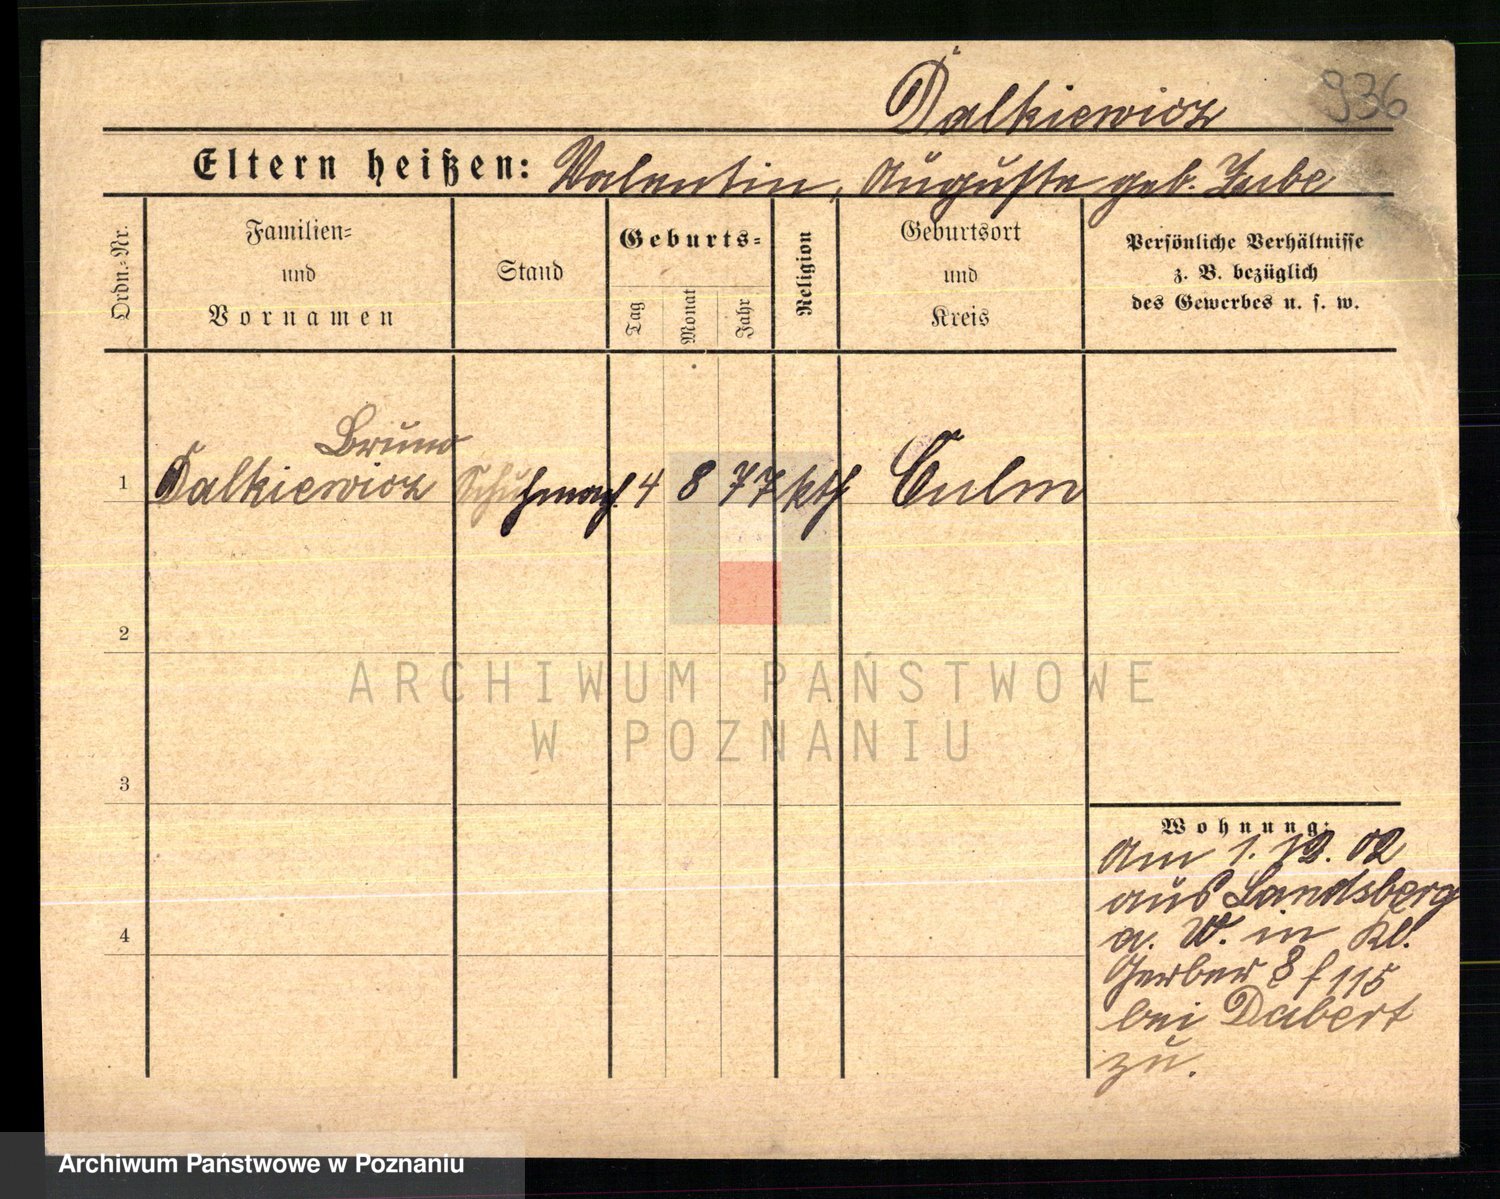 936
Dalkiewicz
Eltern heißen: Valentin, Auguste geb.
Ordn.=Nr.
Familien=
und
Vornamen
Stand
Geburts=
Tag
Monat
Jahr
Religion
Geburtsort
und
Kreis
Persönliche Verhältnisse
z. B. bezüglich
des Gewerbes u. s. w.
Bruno
1 Dalkiewicz Schuhmach. 4 8 77 kth Culm
2
3
4
Wohnung:
am 1. 12. 02
aus Landsberg
a. W. in Kl.
Gerber 8 f 115
bei Dabert
zu.
ARCHIWUM PAŃSTWOWE
W POZNANIU
Archiwum Państwowe w Poznaniu